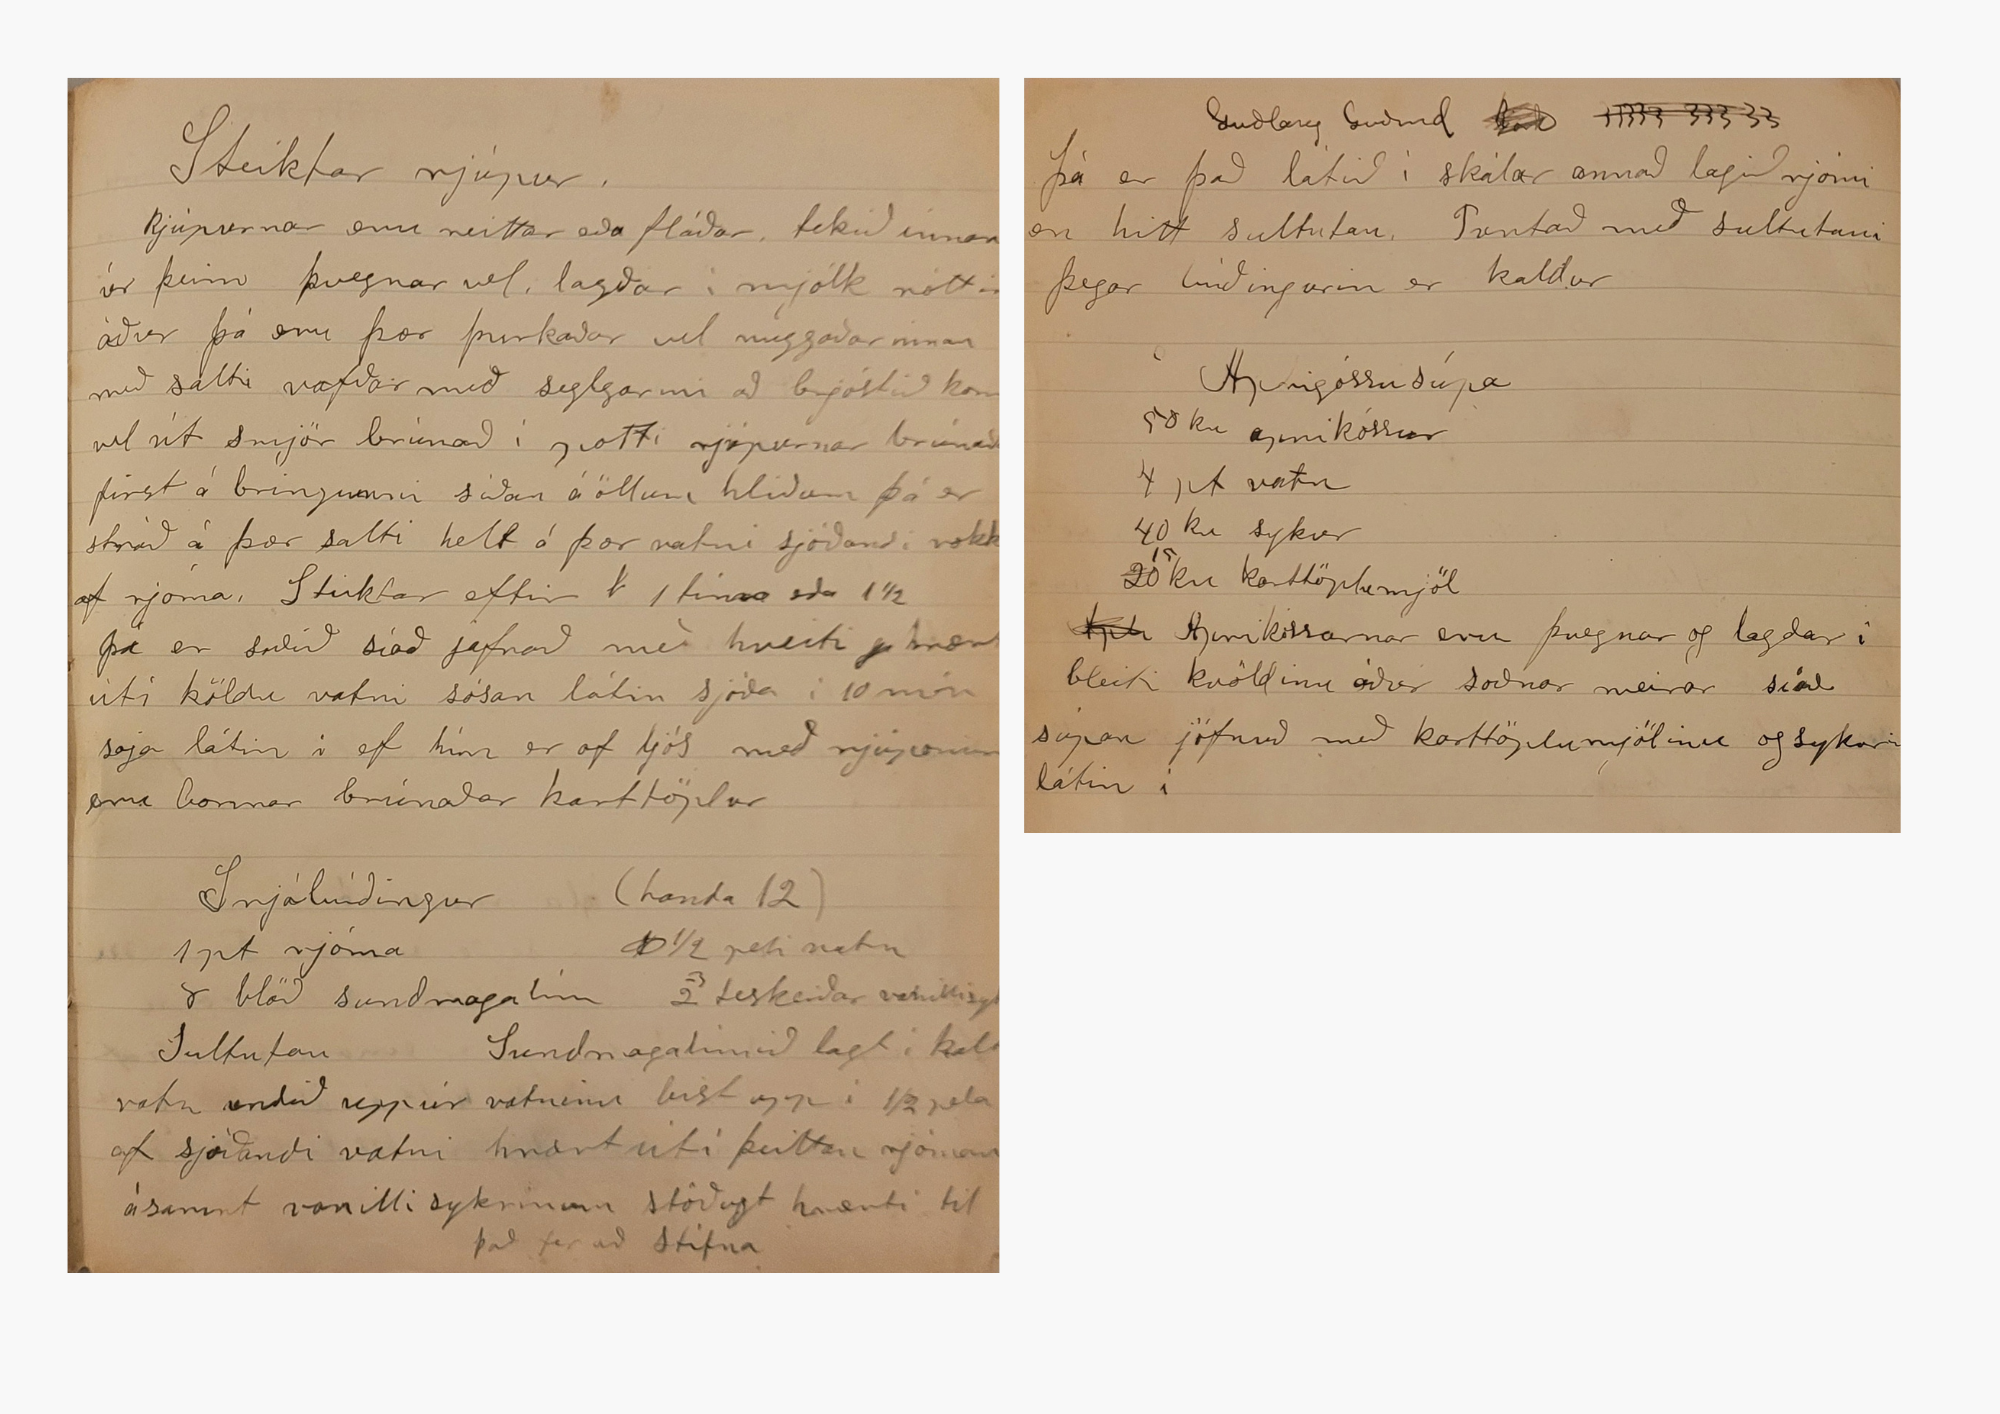 Steiktar rjúpur.
Rjúpurnar eru reittar eða fláðar. tekið innan
úr þeim þvegnar vel, lagðar í mjólk nóttin
áður þá eru þær þurkaðar vel nuggaðar innan
með salti vafðar með seglgarni að brjóstið kom
vel út smjör brúnað í potti rjúpurnar brúnað
first á bringunni siðan á öllum hliðum þá er
stráð á þær salti helt á þær vatni sjóðandi nokk
af rjóma. Steiktar eftir 1 tíma eða 1 1/2
þá er soðið síað jafnað með hveiti hrært
útí köldu vatni sósan látin sjóða í 10 mín
soja látin í ef hún er of ljós með rjúponum
eru bornar brúnaðar karttöplur
Snjóbúðingur (handa 12)
1 pt rjóma 1/2 peli vatn
8 blöð sundmagalím 3 2 teskeiðar vanillisyk
Sultutau Sundmagalimið lagt í kalt
vatn undið uppúr vatninu leist upp í 1/2 pela
af sjóðandi vatni hrært útí þeittan rjóman
ásamt vanilli sykrinum stöðugt hrærti til
það fer að stífna
Guðlaug Guðmd
þá er það látið í skálar annað lagið rjómi
en hitt sultutau. Pontað með sultutaui
þegar búðingurin er kaldur
Aprigóssusúpa
50 kv aprikóssur
4 pt vatn
40 kv sykur
20 15 kv karttöplumjöl
Aprikóssurnar eru þvegnar og lagðar í
bleiti kvöldinu áður soðnar meirar síað
súpan jöfnuð með karttöplumjölinu og sykuri
látin í